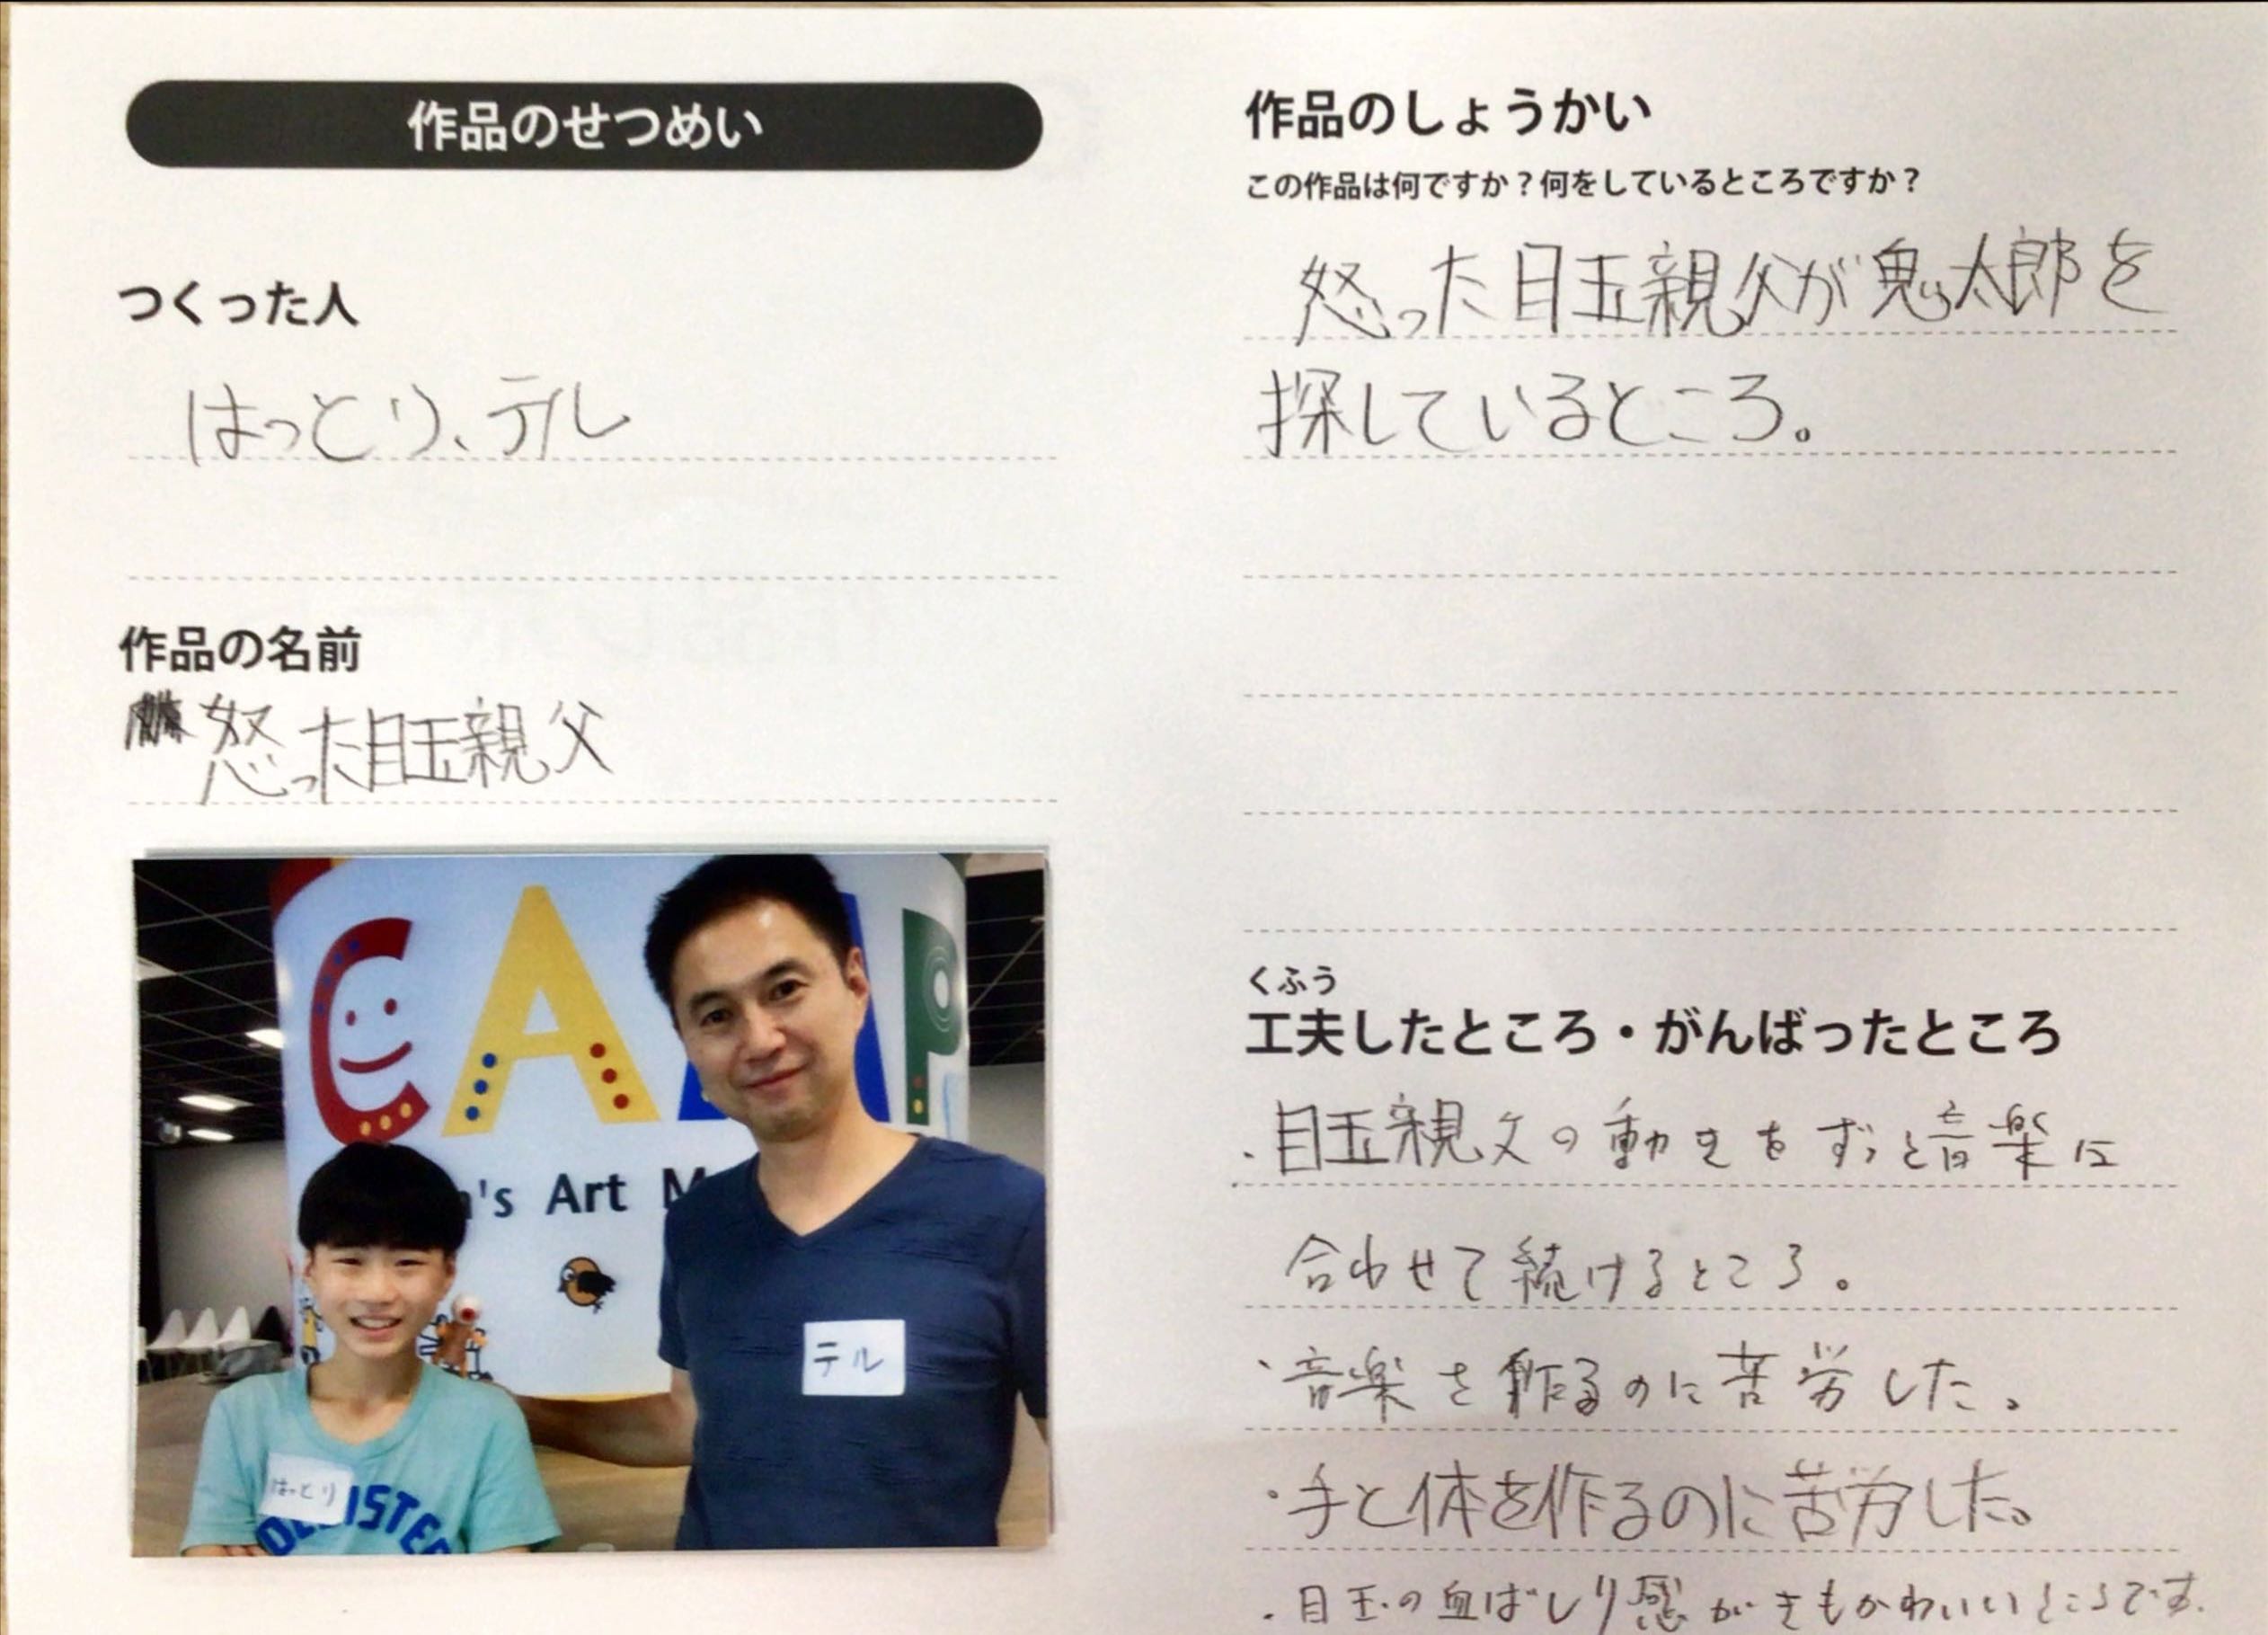 作品のせつめい
つくった人
はっとり、テル
作品の名前
怒った目玉親父
CAMP
n's Art M
テル
はっとり
作品のしょうかい
この作品は何ですか？何をしているところですか？
怒った目玉親父が鬼太郎を
探しているところ。
くふう
工夫したところ・がんばったところ
・目玉親父の動きをずっと音楽に
合わせて続けるところ。
・音楽を作るのに苦労した。
・手と体を作るのに苦労した。
・目玉の血ばしり感がきもかわいいところです.